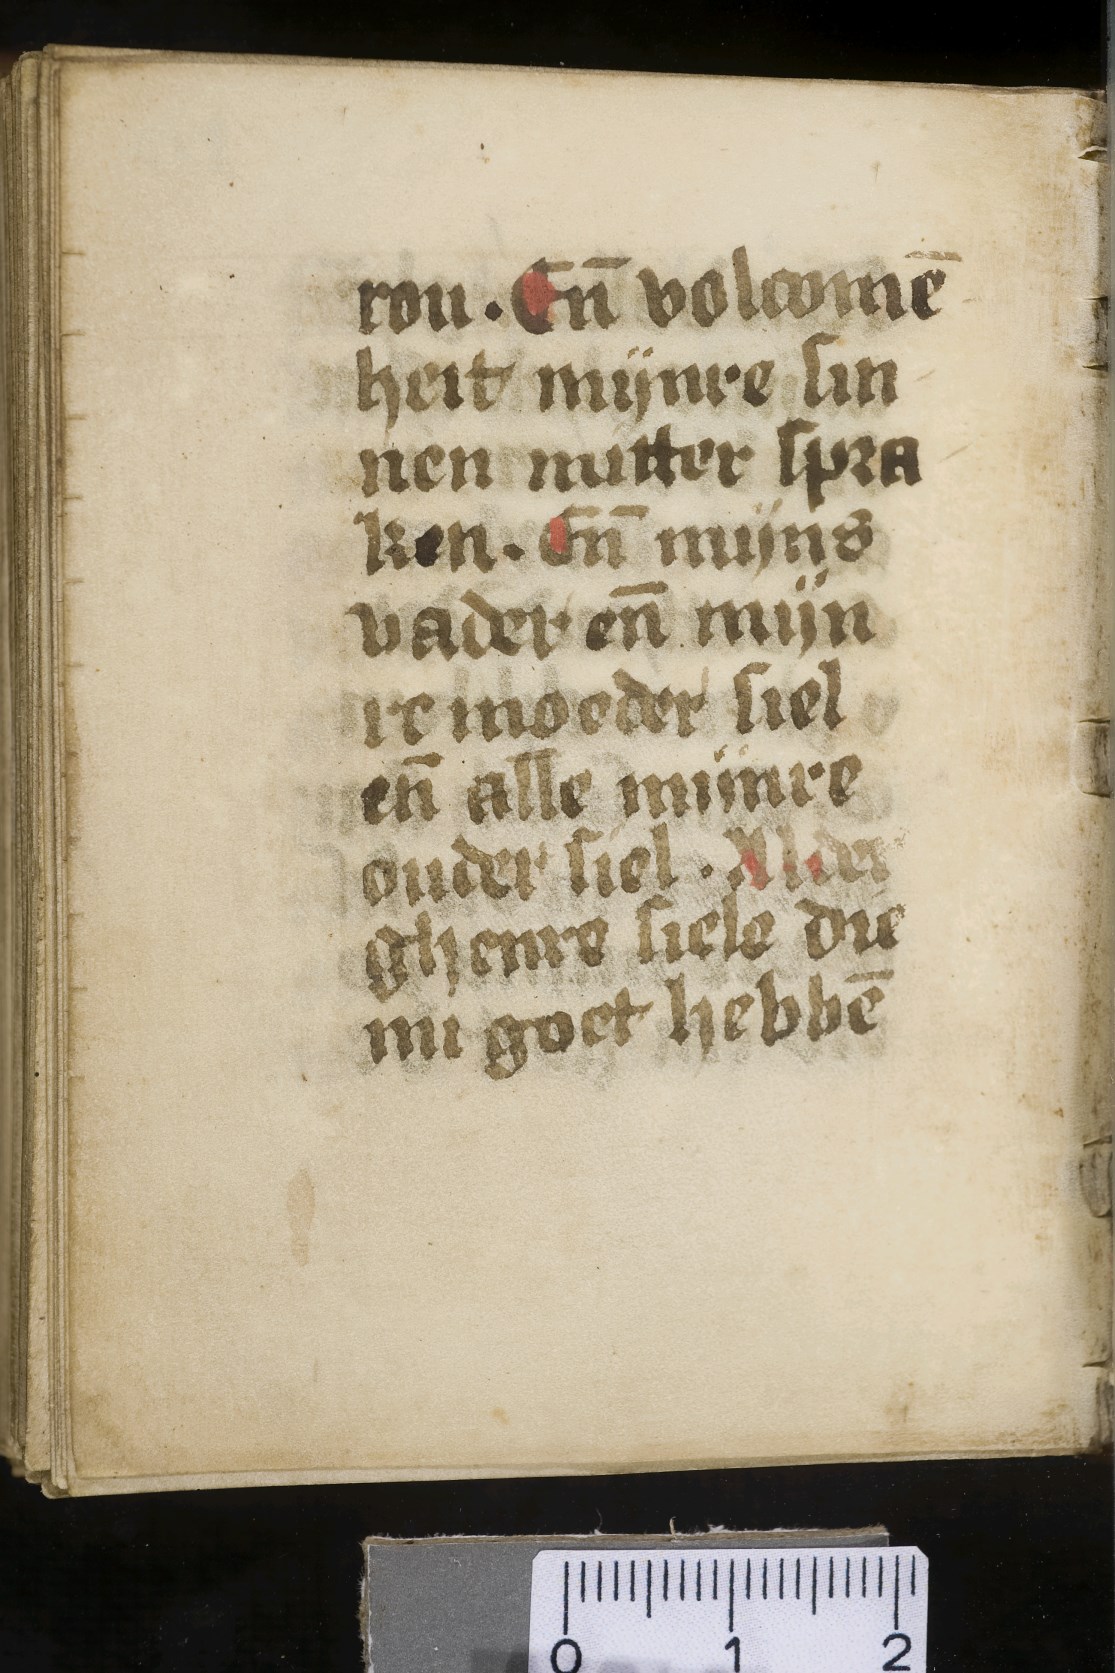 rou. En̄ volcomē
heit mijnre sin
nen mitter spra
ken. En̄ mijns
vader en̄ mijn
re moeder siel
en̄ alle mijnre
ouder siel. Alder
ghenre siele die
mi goet hebbē
0 1 2